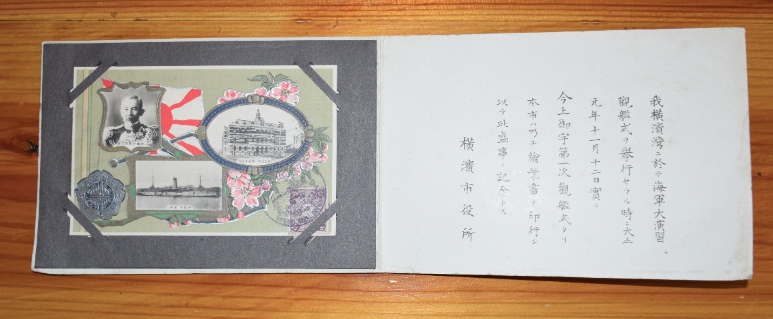 我横濱灣ニ於テ海軍大演習
觀艦式ヲ擧行セラル時ニ大正
元年十一月十二日實ニ
今上御宇第一次觀艦式タリ
本市乃チ繪葉書ヲ印行シ
以テ此盛事ヲ記念トス
橫濱市役所